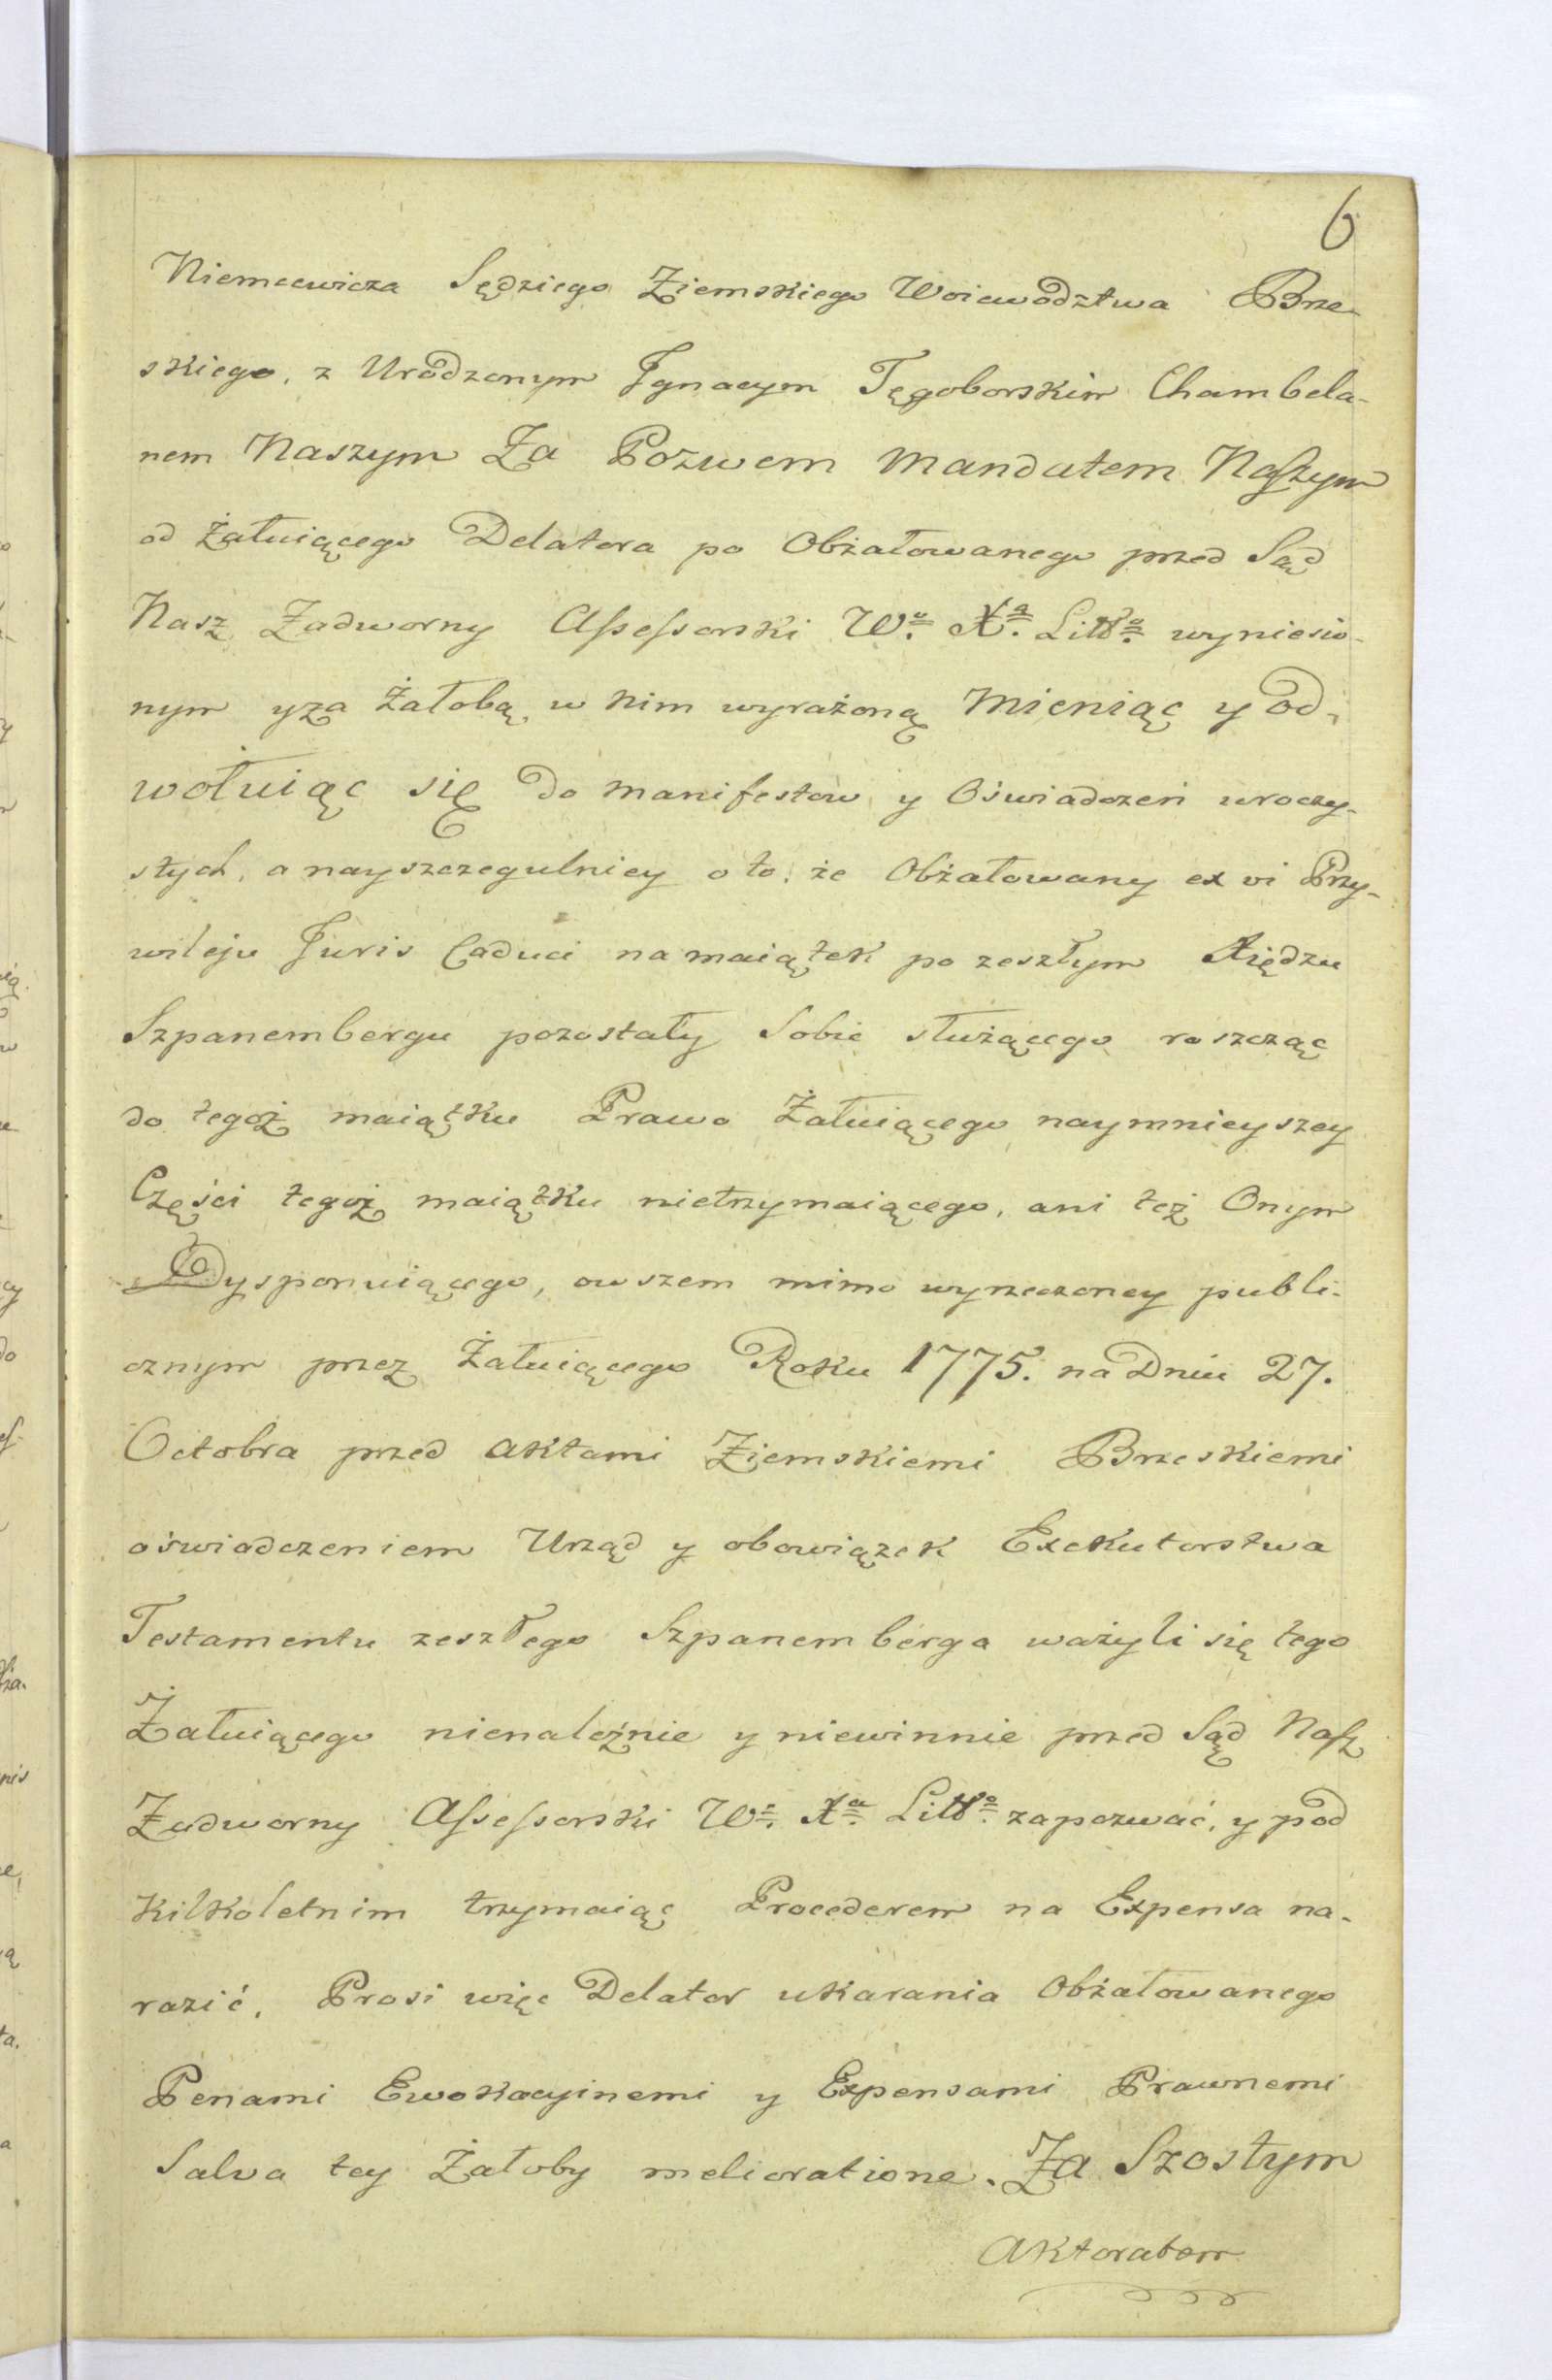 6
Niemcewicza Sędziego Ziemskiego Woiewodztwa Brze-
skiego, z Urodzonym Ignacym Tęgoborskim Chambela-
nem Naszym Za Pozwem Mandatem Naszym
od Żałuiącego Delatora po Obżałowanego przed Sąd
Nasz Zadworny Assessorski Wo. Xa. Litto. wyniesio-
nym y za Żałobą w nim wyrażoną Mieniąc y od-
wołuiąc się do manifestow y Oświadczeń uroczy-
stych, a nayszczegulniey o to, że Obżałowany ex vi Przy-
wileju Juris Caduci na maiątek po zeszłym Xiędzu
Szpanembergu pozostały Sobie służącego roszcząc
do tegoż maiątku Prawo Żałuiącego naymnieyszey
Części tegoż maiątku nietrzymaiącego, ani też Onym
Dysponuiącego, owszem mimo wyrzeczoney publi-
cznym przez Żałuiącego Roku 1775. na Dniu 27.
Octobra przed aktami Ziemskiemi Brzeskiemi
oświadczeniem Urząd y obowiązek Exekutorstwa
Testamentu zeszłego Szpanemberga ważyli się tego
Żałuiącego nienależnie y niewinnie przed Sąd Nasz
Zadworny Assessorski Wo. Xa. Litto. zapozwać, y pod
kilkoletnim trzymaiąc Procederem na Expensa na-
razić. Prosi więc Delator ukarania Obżałowanego
Penami Ewokacyinemi y Expensami Prawnemi
Salva tey Żałoby melioratione. Za Szostym
Aktoratem